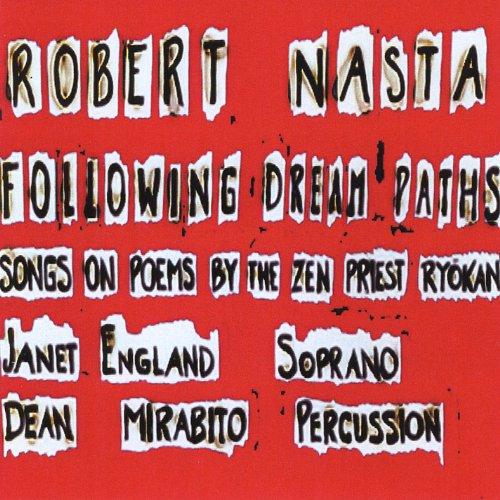 ROBERT NASTA
FOLLOWING DREAM PATHS
SONGS ON POEMS BY THE ZEN PRIEST RYŌKAN
JANET ENGLAND SOPRANO
DEAN MIRABITO PERCUSSION